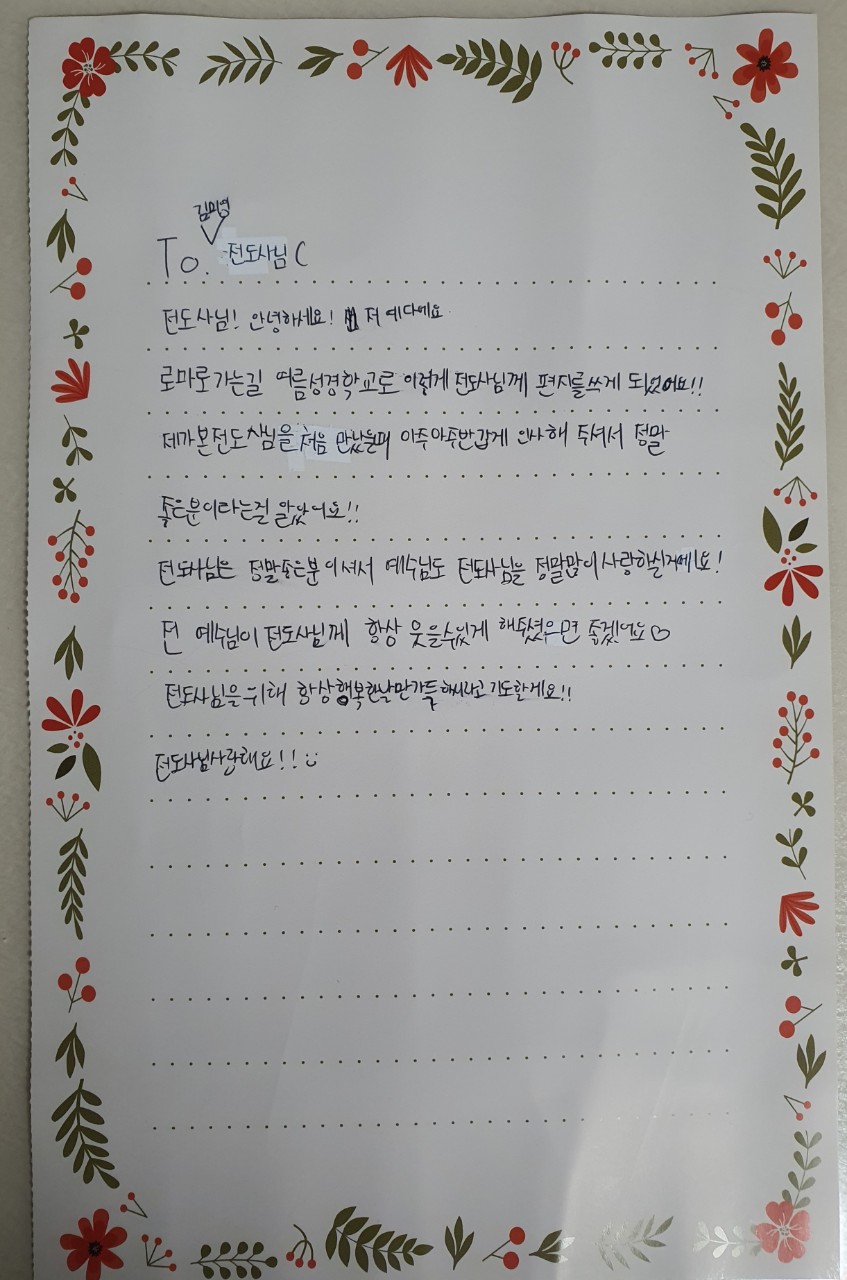 김미영
To. 전도사님 (
전도사님! 안녕하세요! 저 예다에요
로마로가는길 여름성경학교로 이렇게 전도사님께 편지를쓰게 되었어요!!
제가본전도사님을 처음 만났을때 아주아주반갑게 인사해 주셔서 정말
좋은분이라는걸 알았어요!!
전도사님은 정말좋은분이셔서 예수님도 전도사님을 정말많이사랑하실거에요!
전 예수님이 전도사님께 항상 웃을수있게 해주셨으면 좋겠어요♡
전도사님을위해 항상행복한날만가득하시라고 기도할게요!!
전도사님사랑해요!!